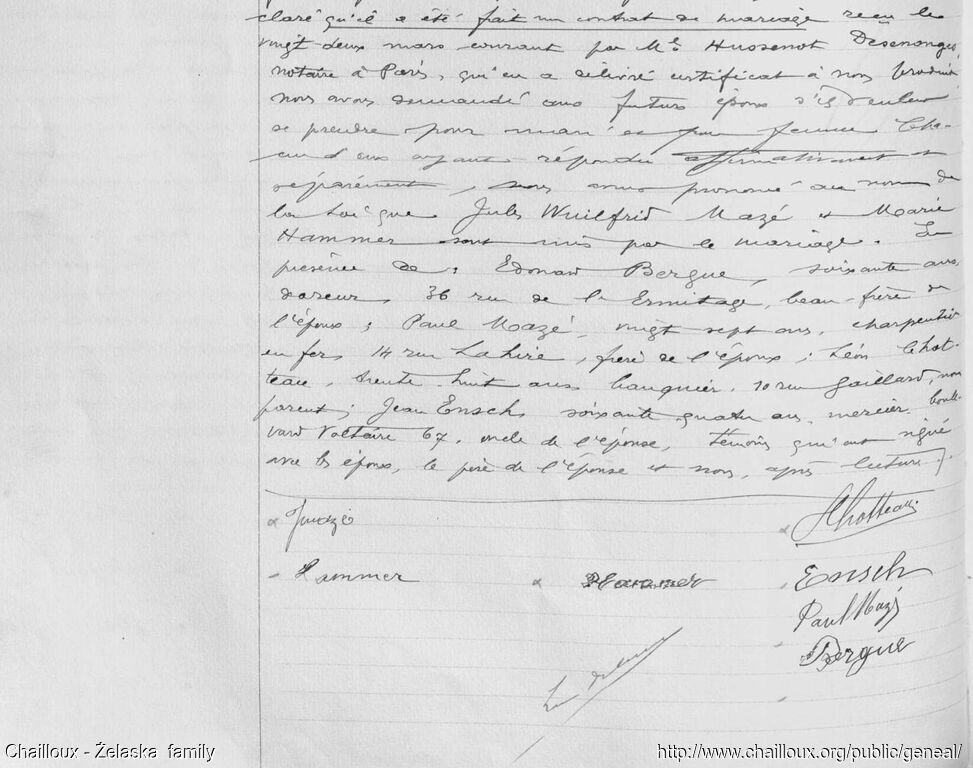 claré qu'il a été fait un contrat de mariage reçu le
vingt deux mars courant par Me Hussenot Desenonges
notaire à Paris, qui en a délivré certificat à nous produit
nous avons demandé aux futurs époux s'ils veulent
se prendre pour mari et pour femme Cha-
cun d'eux ayant répondu affirmativement et
séparément, nous avons prononcé au nom de
la Loi que Jules Wuilfrid Mazé et Marie
Hammer sont unis par le mariage. En
présence de: Edouard Bergue, soixante ans,
doreur, 36 rue de l'Ermitage, beau-frère de
l'époux; Paul Mazé, vingt sept ans, charpentier
en fer, 14 rue Lahire, frère de l'époux; Léon Chot-
teau, trente huit ans banquier, 10 rue Gaillard, non
parent; Jean Ensch, soixante quatre ans, mercier, boule-
vard Voltaire 67, oncle de l'épouse, témoins qui ont signé
avec les époux, le père de l'épouse et nous, après lecture.
JMazé
Chotteau
Hammer
Hammer
Ensch
Paul Mazé
Bergue
Chailloux - Želaska family
http://www.chailloux.org/public/geneal/